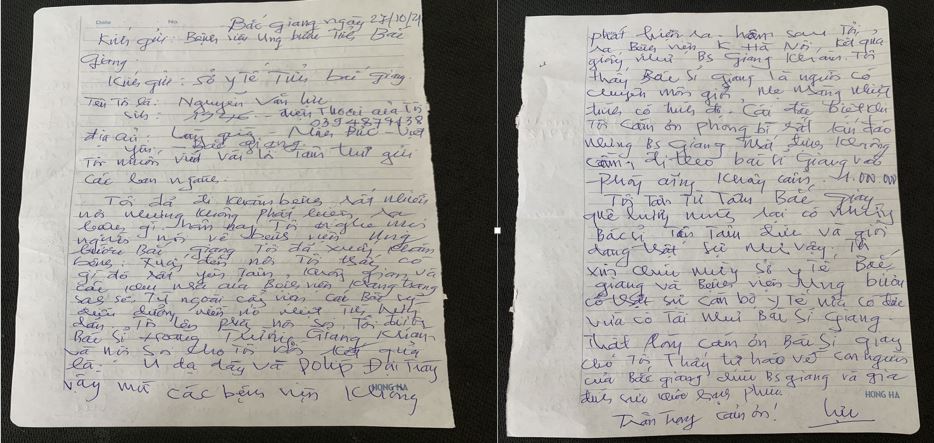 Date No.
Bắc giang ngày 27/10/21
Kính gửi: Bệnh viện Ung bướu Tỉnh Bắc
Giang.
Kính gửi: Sở y Tế Tỉnh bắc giang.
Tên Tôi là: Nguyễn Văn
Sinh: điện Thoại của Tôi
địa chỉ: Làng
Yên, - Bắc giang.
Tôi muốn viết vài lời Tâm thư gửi
các ban ngành.
Tôi đã đi khám bệnh rất nhiều
nơi nhưng không phát hiện ra
bệnh gì. hôm nay Tôi nghe mọi
người nói về bệnh viện Ung
bướu Bắc giang Tôi đã xuống khám
bệnh, xuống đến nơi Tôi thấy có
gì đó rất yên Tâm, không gian và
các khu nhà của Bệnh viện khang trang
sạch sẽ. Từ ngoài cổng vào các Bác sỹ
điều dưỡng viên
dẫn Tôi lên phòng nội soi. Tôi được
Bác Sĩ Hoàng Trường Giang khám
và nội soi cho Tôi kết quả
là: U dạ dày và Polip Đại Tràng
vậy mà các bệnh viện không
HONG HA
phát hiện ra. hôm sau Tôi
ra Bệnh viện K Hà Nội, kết quả
giống như BS Giang khám. Tôi
thấy Bác Sĩ giang là người có
chuyên môn giỏi
Tôi cảm ơn phong bì
nhưng BS Giang nhất định không
cầm, đi theo bác sĩ Giang vào
phòng cũng không cầm. 4.000.000
Tôi Tâm Tư Tâm Bắc giang
quê hương mình lại có những
Bác sĩ Tận Tâm như và giỏi
dang thật sự như vậy. Tôi
xin chúc mừng Sở y Tế Bắc
giang và Bệnh viện Ung bướu
có thật sự cán bộ y Tế vừa có đức
vừa có Tài như Bác Sĩ Giang.
Thật lòng cảm ơn Bác Sĩ giang
cho Tôi Thấy tự hào về con người
của Bắc giang chúc BS giang và gia
đình sức khỏe hạnh phúc.
HONG HA
Trân Trọng cảm ơn!